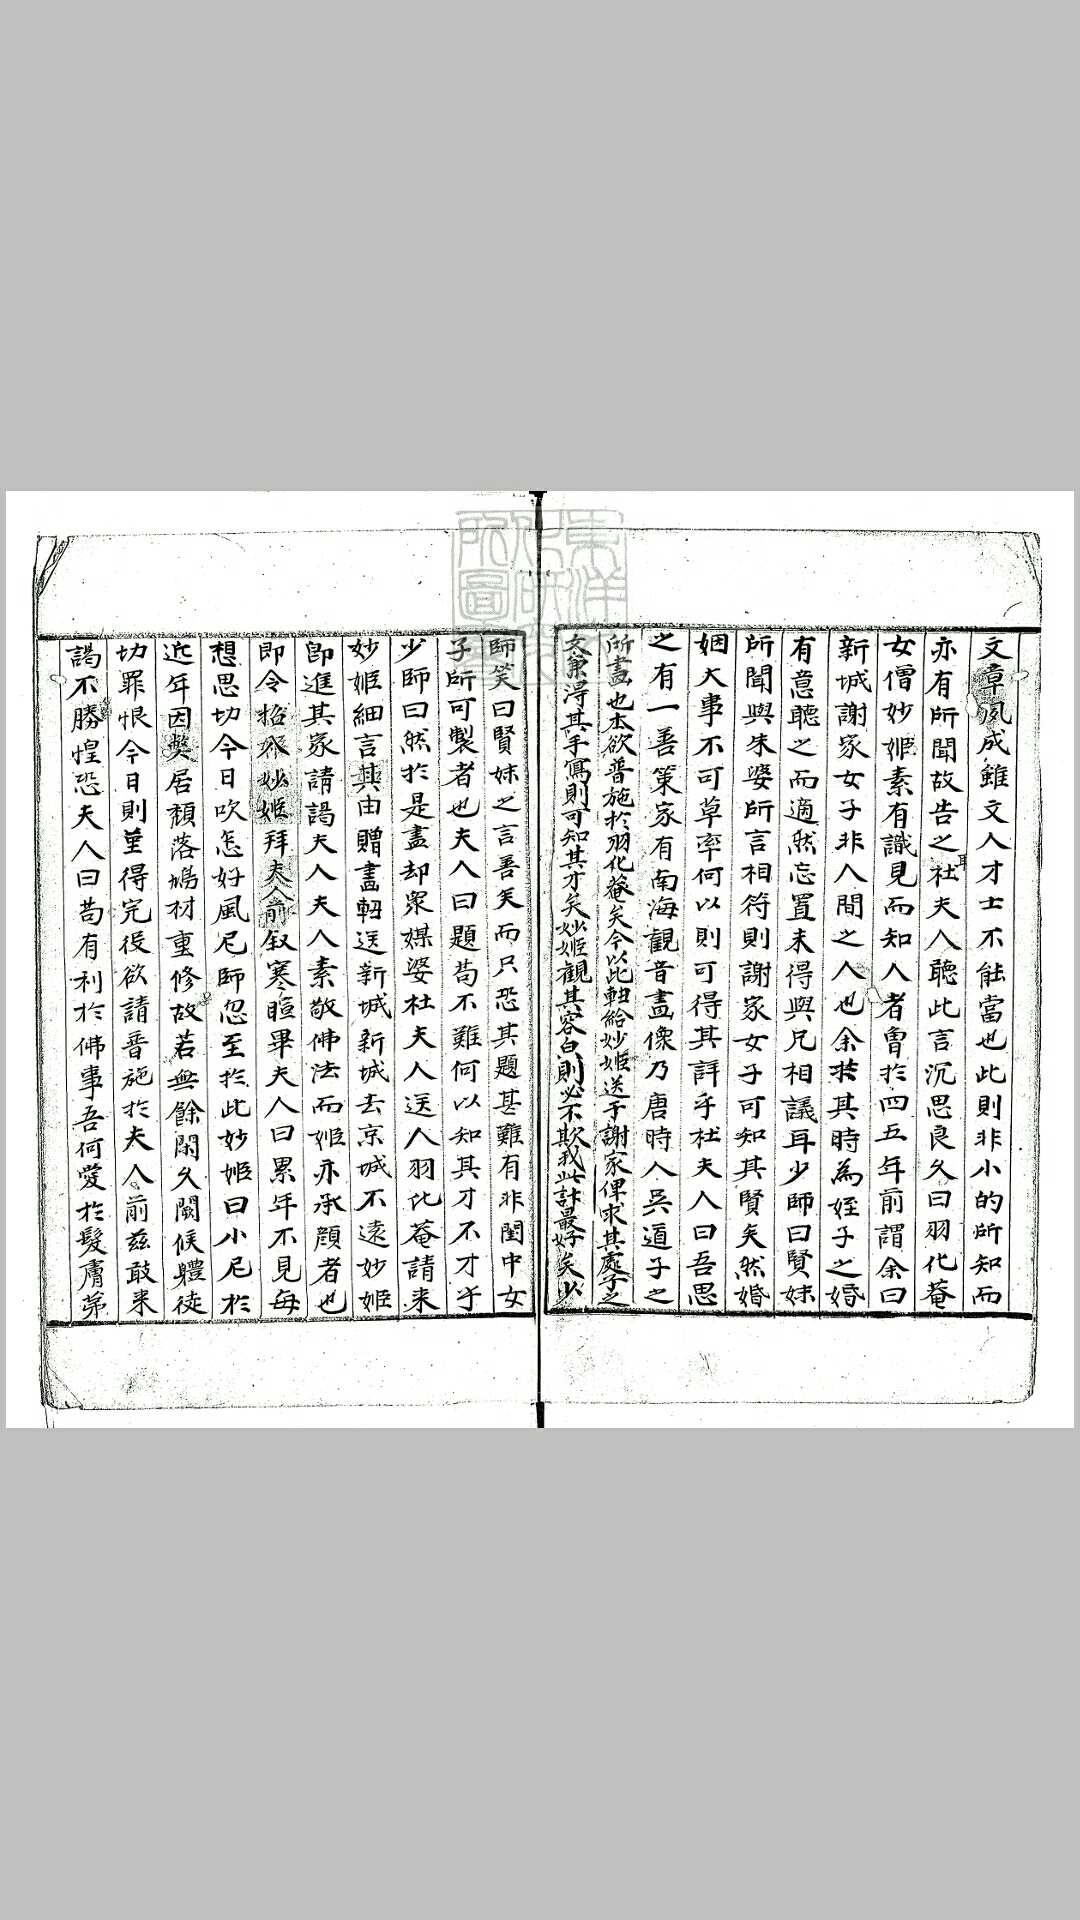 文章夙成雖文人才士不能當也此則非小的所知而
亦有所聞故告之耳杜夫人聽此言沉思良久曰羽化菴
女僧妙姬素有識見而知人者曾於四五年前謂余曰
新城謝家女子非人間之人也余於其時為姪子之婚
有意聽之而適然忘置未得與兄相議耳少師曰賢妹
所聞與朱婆所言相符則謝家女子可知其賢矣然婚
姻大事不可草率何以則可得其詳乎杜夫人曰吾思
之有一善策家有南海觀音畫像乃唐時人吳道子之
所畫也本欲普施於羽化菴矣今以此軸給妙姬送于謝家俾求其處子之
文兼得其手寫則可知其才矣妙姬觀其容色則必不欺我此計最好矣少
師笑曰賢妹之言善矣而只恐其題甚難有非閨中女
子所可製者也夫人曰題苟不難何以知其才不才乎
少師曰然於是盡却衆媒婆杜夫人送人羽化菴請來
妙姬細言其由贈畫軸送新城新城去京城不遠妙姬
卽進其家請謁夫人夫人素敬佛法而姬亦承顔者也
即令招 妙姬拜夫人前叙寒暄畢夫人曰累年不見每
想思切今日吹怎好風尼師忽至於此妙姬曰小尼於
近年因弊居頹落鳩材重修故若無餘閑久闕候軆徒
切罪恨今日則堇得完役欲請普施於夫人前玆敢来
謁不勝惶恐夫人曰苟有利於佛事吾何愛於髮膚苐